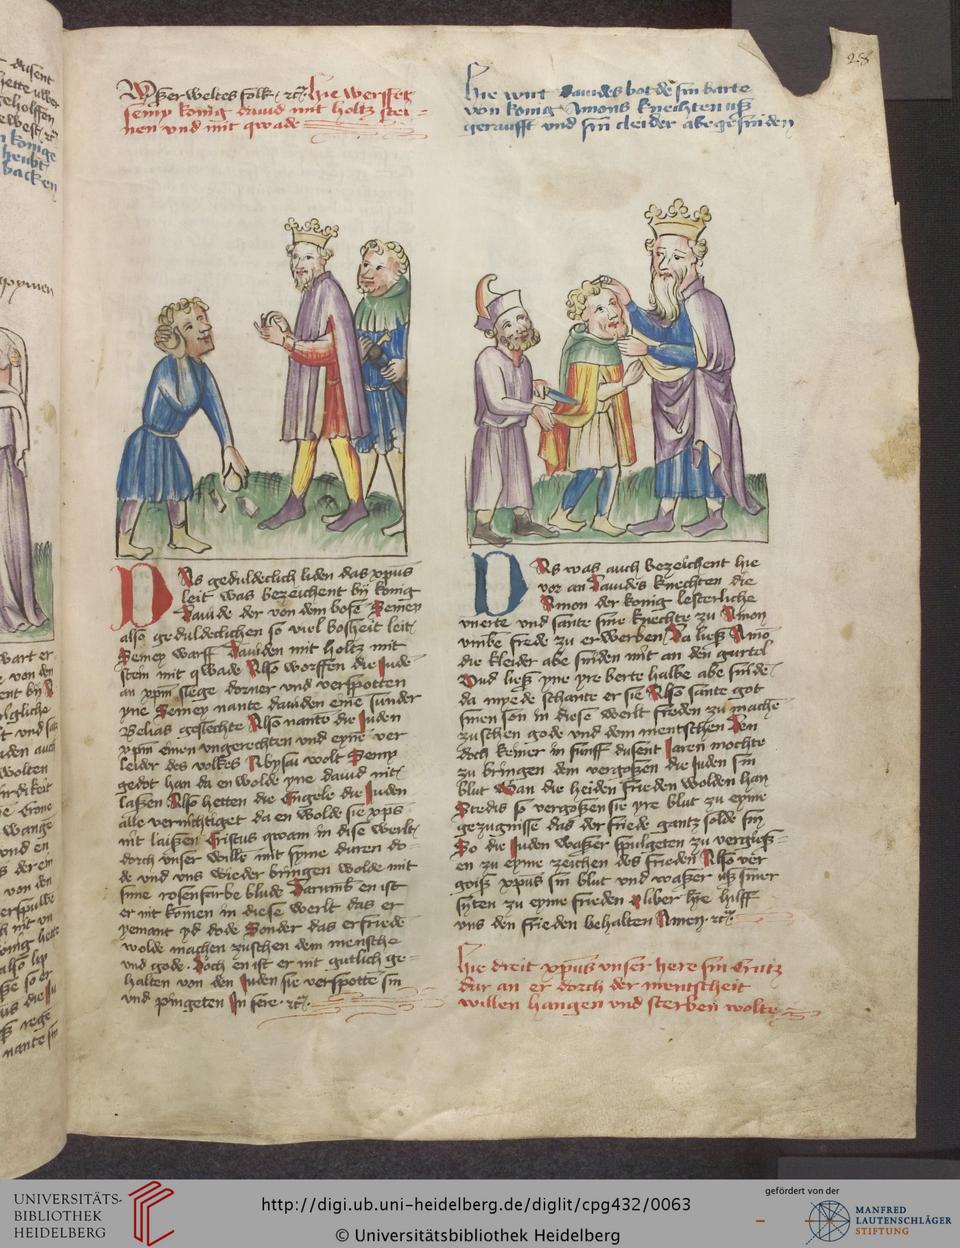 258
vßer weltes folk ꝛc Hie werffet
semy konig dauid mit holtz stei-
nen und mit qwade
Hie wirt dauides botde sin barte
von konig Amons knechten uß
geraufft und sin cleider abegesniden
Das geduldeclich liden das xpus
leit was bezeichent bÿ konig
Dauide der von dem bosen Semey
also gedulteclichen so viel bosheit leit
Semey warff Dauiden mit holtz mit
stein mit qwade Also worffen die Jude
an xpm slege dorner und verspotten
yne Semey nante dauiden eine sunder
Belias geslechte Also nante die Juden
xpm einen ungerechten und eyne ver
leider des volkes Abysai wolt Semy
gedot han da en wolde yne dauid nit
laßen Also hetten die Engele die Juden
alle vernichtiget da en wolde sie xps
nit laißen Cristus qwam in dise werlt
dorch unser wille mit syme duren do-
de und uns wieder bringen wolde mit
sime rosenfarbe blude Darumb en ist
er nit komen in diese werlt das er
yemant yd dode Sonder das er friede
wolde machen zuschen dem mensche
und gode. Doch en ist er nit gutlich ge-
halten von den Juden sie verspotte sin
und pingeten In sere ꝛc
Das was auch bezeichent hie
vor an Dauides knechten die
Amon der konig lesterliche
unerte und sante sine knechte zu Amon
umbe frede zu erwerben Da ließ Amō
die kleider abe sniden mit an den gurtel
Und ließ yne yre berte halbe abe snide
da mÿede schante er sie Also sante got
sinen son in diese werlt freden zu mache
zuschen gode und dem mentschen Den
doch keiner in funff dusent Jaren mochte
zu bringen dem vergoßen die Juden sin
blut Wan die heiden frieden wolden han
Stedis so vergoßen sie yre blut zu eyme
gezugnisse das der friede gantz solde sin
So die Juden waßer spulgeten zu vergieß-
en zu eyme zeichen des frieden Also ver
goiß xpus sin blut und waßer uß siner
syten zu eyme frieden O liber hre hilff
uns den frieden behalten Amen ꝛc
Hie dreit xpus unser here sin Crutz
dar an er dorch der mentscheit
willen hangen und sterben wolte
UNIVERSITÄTS-
BIBLIOTHEK
HEIDELBERG
http://digi.ub.uni-heidelberg.de/diglit/cpg432/0063
© Universitätsbibliothek Heidelberg
gefördert von der
MANFRED
LAUTENSCHLÄGER
STIFTUNG